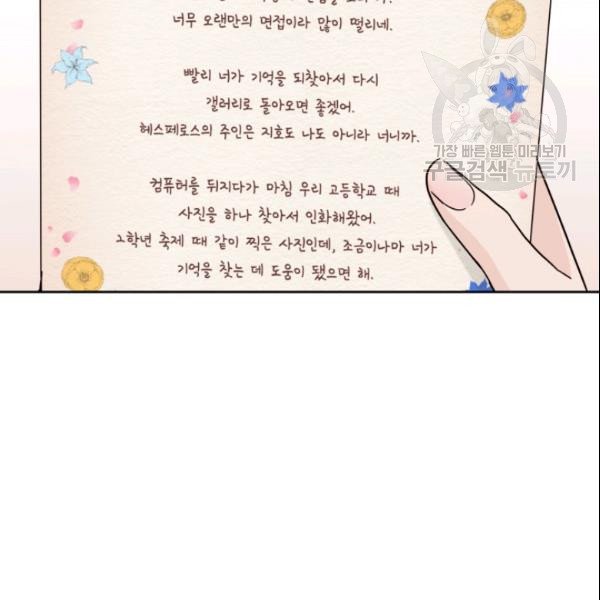 너무 오랜만의 면접이라 많이 떨리네.
빨리 너가 기억을 되찾아서 다시
갤러리로 돌아오면 좋겠어.
헤스페로스의 주인은 지호도 나도 아니라 너니까.
컴퓨터를 뒤지다가 마침 우리 고등학교 때
사진을 하나 찾아서 인화해왔어.
2학년 축제 때 같이 찍은 사진인데, 조금이나마 너가
기억을 찾는 데 도움이 됐으면 해.
가장 빠른 웹툰 미리보기
구글검색 뉴토끼